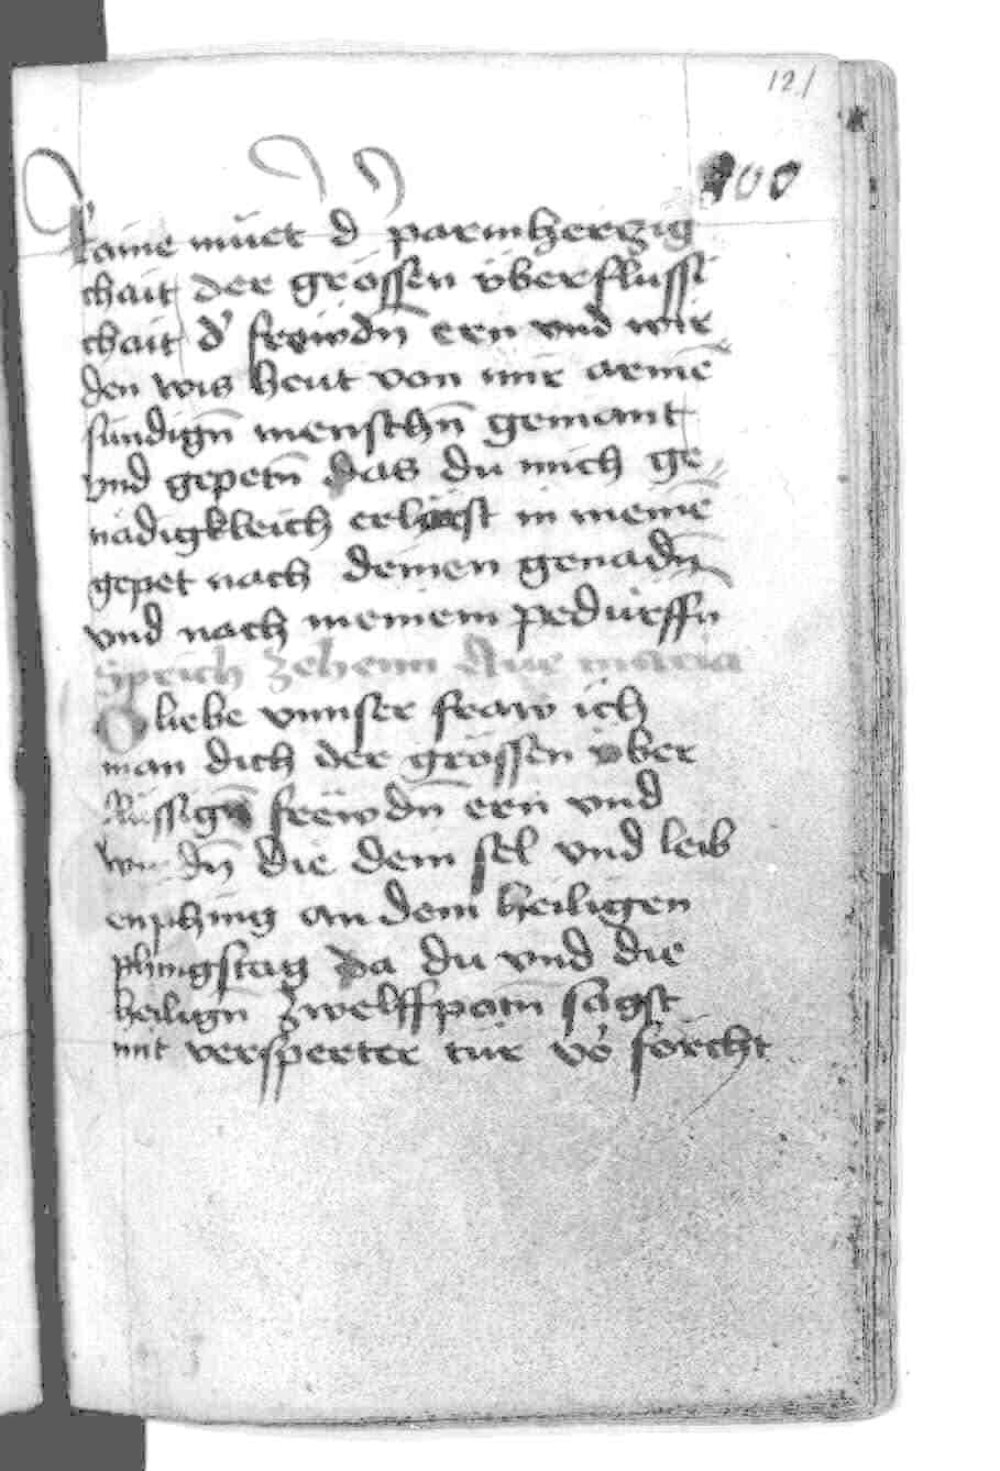 121
100
kaine müet d parmherczig
chait der grössen überflüssi
chait d' frewdn̄ ern vnd wir
den wis heut von mir armē
sündign̄ menschn̄ gemant
vnd gepetn̄ das du mich ge
nädigkleich erhörst in meinē
gepet nach deinen genadn̄
vnd nach meinem pedürffn̄
Sprich zehenn Aue maria
O liebe vnnser fraw ich
man dich der grössen über
flüssign̄ frewdn̄ ern vnd
wirdn̄ die dein sel vnd leib
enphing an dem heiligen
phingstag da du vnd die
heilign̄ zwelffpotn̄ sagst
mit versperter tür vō forcht